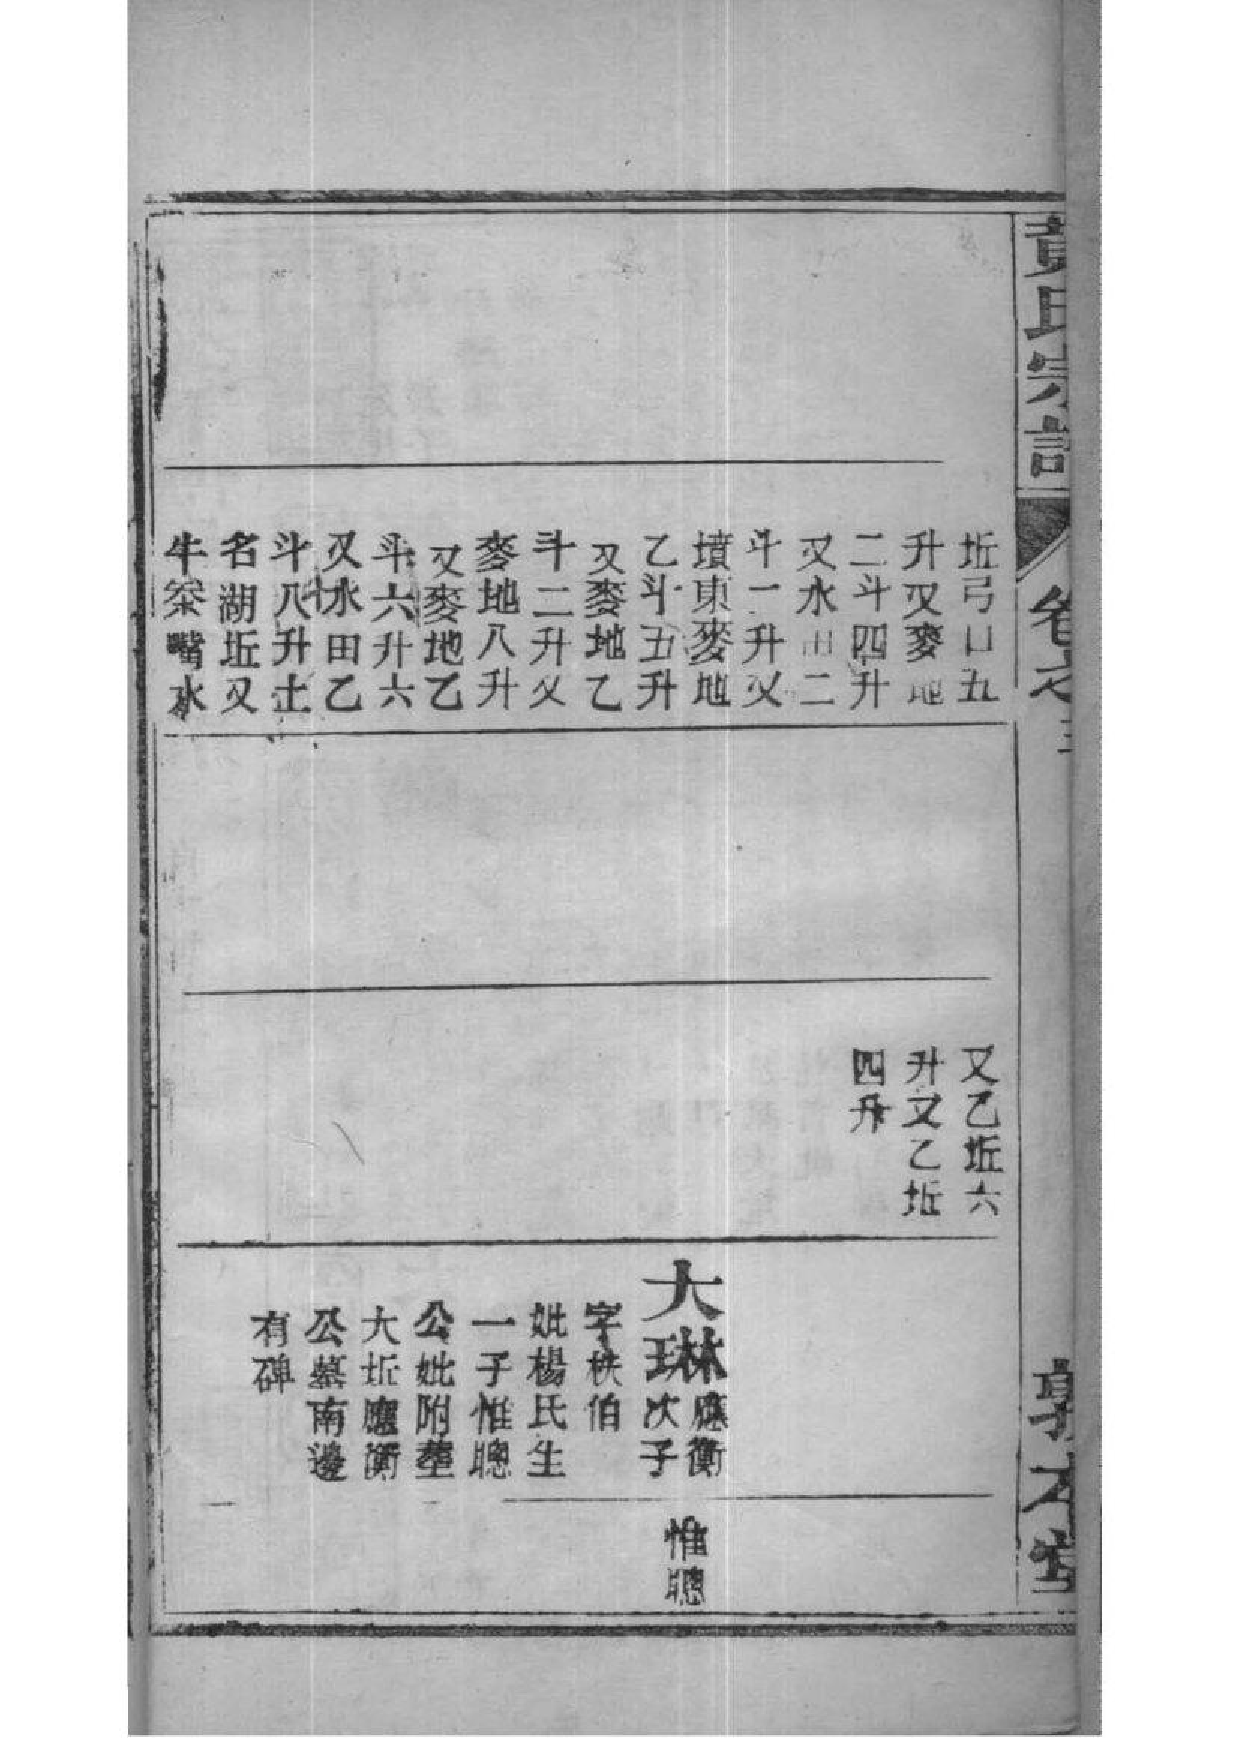 黃氏宗譜
卷之
敦本堂
坵弓口五
升又麥地
二斗四升
又水田二
斗一升又
墳東麥地
乙斗五升
又麥地乙
斗二升又
麥地八升
又麥地乙
斗六升六
又水田乙
斗八升土
名湖坵又
牛桊嘴水
又乙坵六
升又乙坵
四升
大琳
應衡
次子
字秩伯
妣楊氏生
一子惟聰
公妣附塟
大坵應衡
公墓南邊
有碑
惟聰